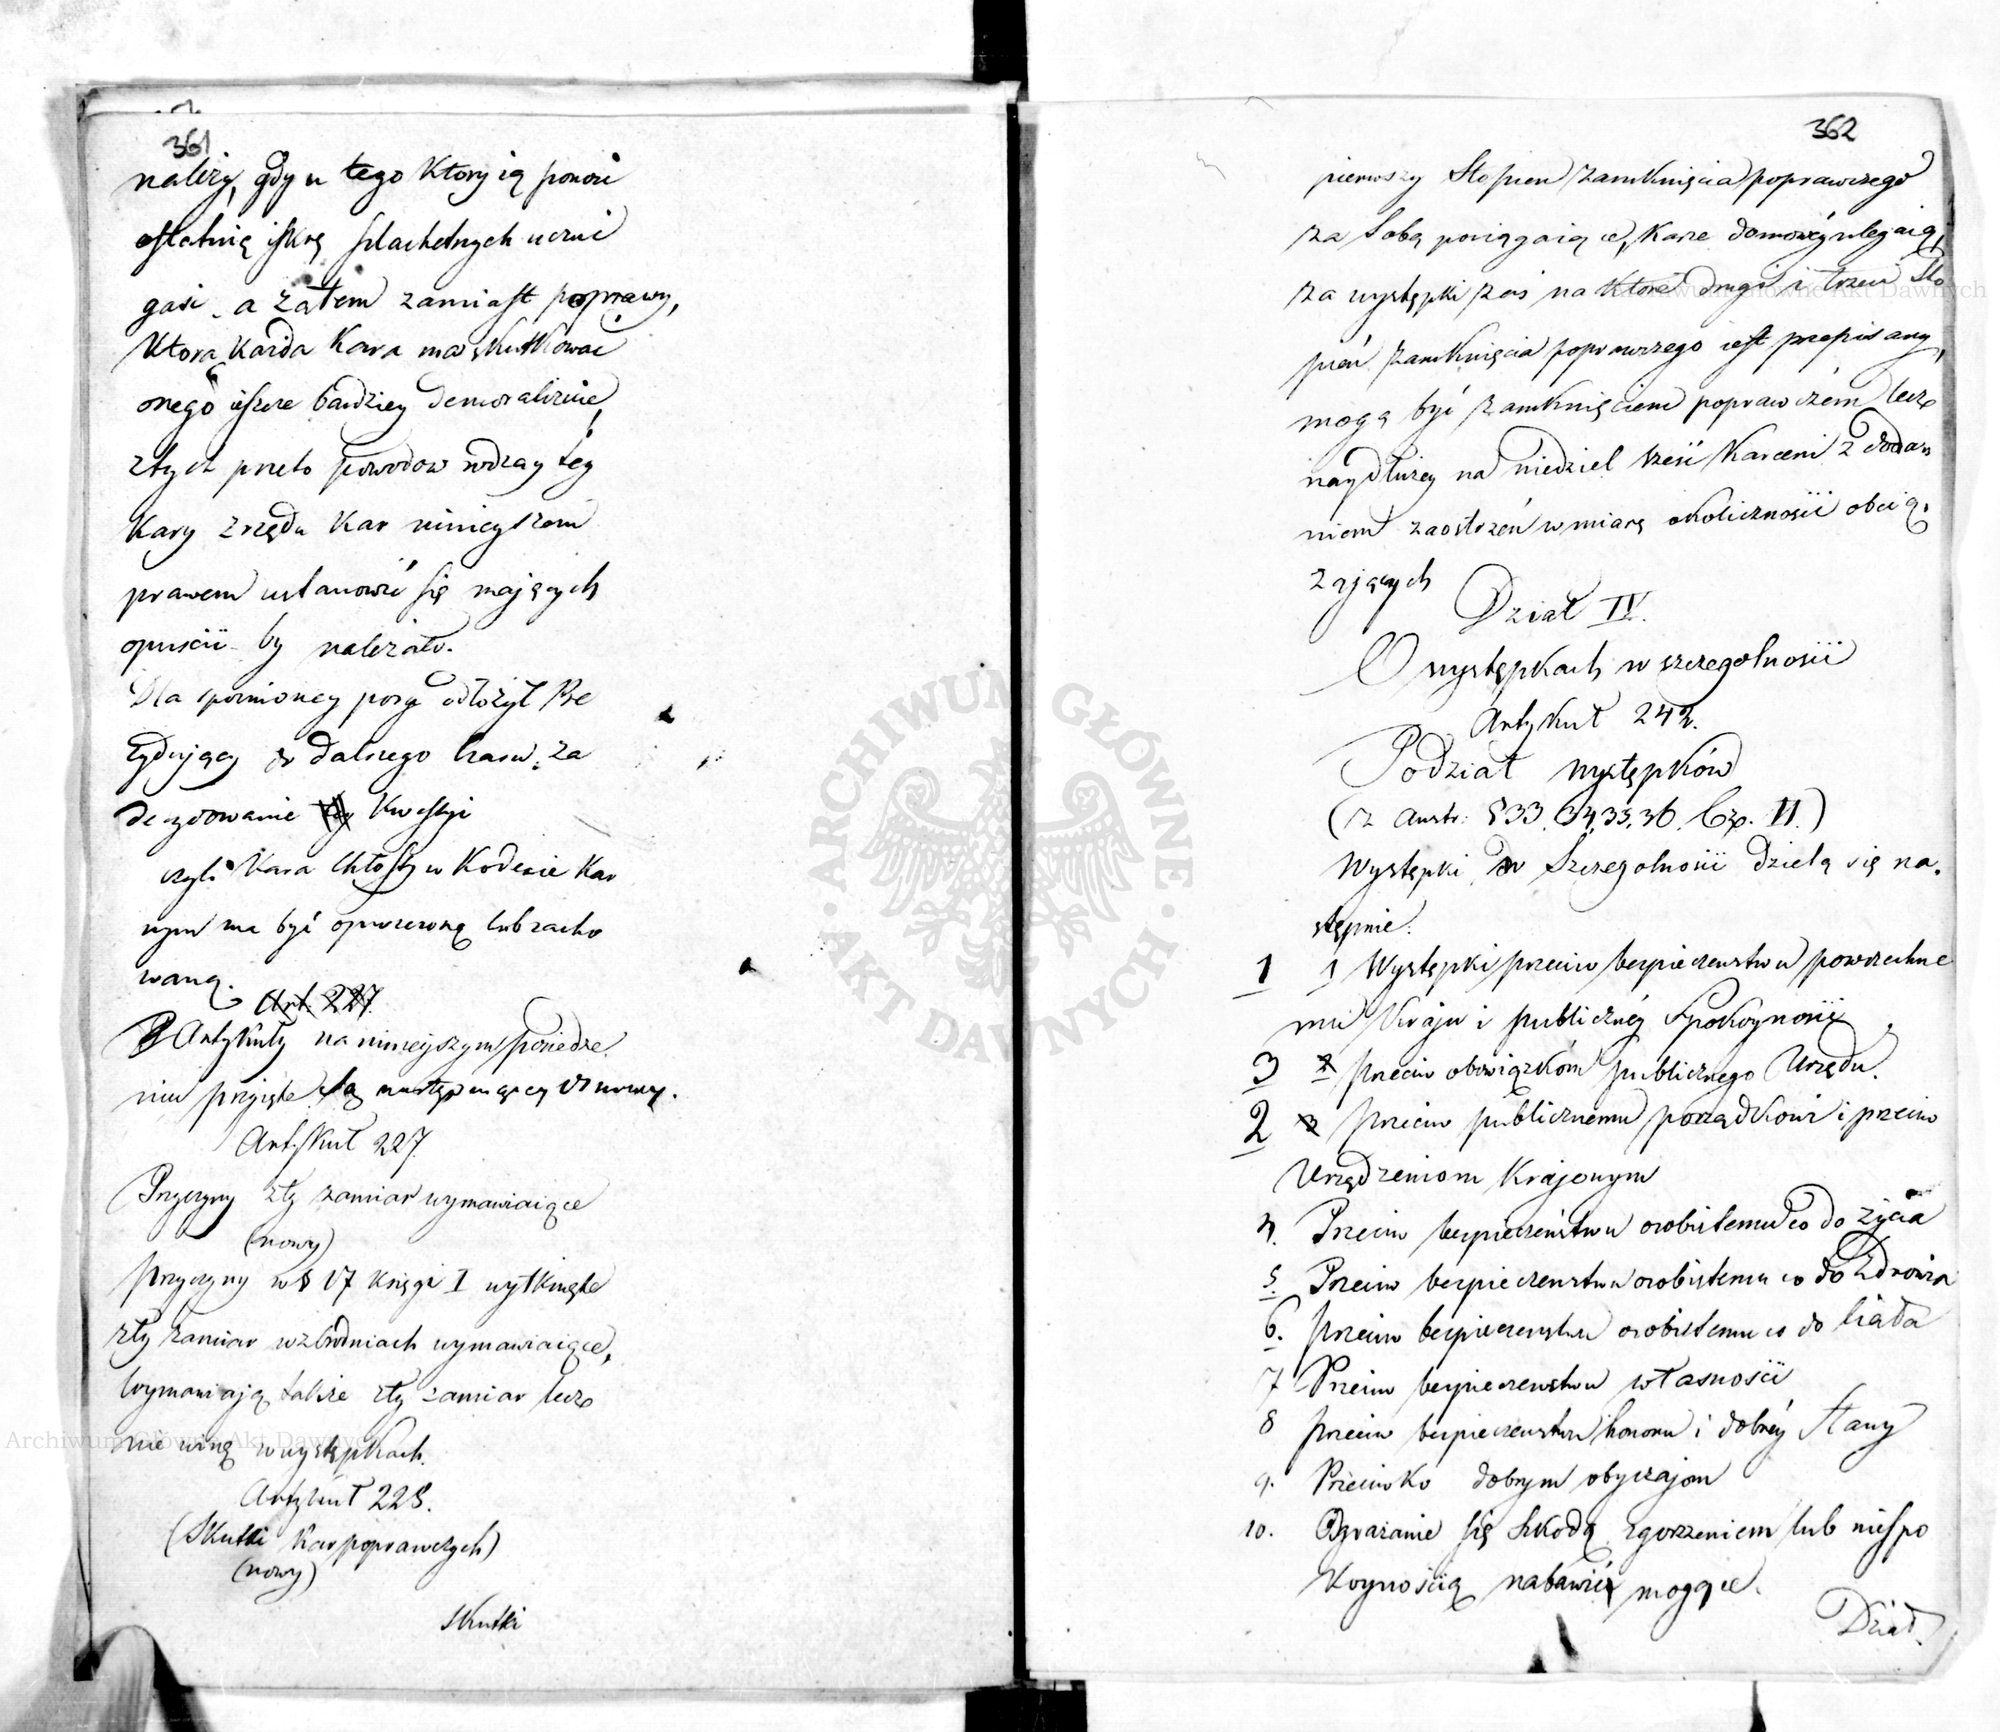 361
należy, gdy u tego ktory ią ponosi
ostatnią iskrę szlachetnych uczuć
gasi, a zatem zamiast poprawy,
ktorą każda kara ma skutkować
onego ieszcze bardziey demoralizuie,
z tych przeto powodow rodzay tey
kary z rzędu kar ninieyszem
prawem ustanowić się mających
opuścić by należało.
Dla spoźnioney pory odłożył Pre
zydujący do dalszego czasu za
decydowanie kwestyi
czyli kara chłosty w kodexie kar
nym ma być opuszczoną lub zacho
waną.
Art. 227.
Artykuły na niniejszym posiedze
niu przyięte są następuiącey osnowy.
Artykuł 227.
Przyczyny zły zamiar wymawiaiące
(nowy)
Przyczyny w § 17 księgi I wytknięte
zły zamiar w zbrodniach wymawiaiące,
wymawiają także zły zamiar lecz
nie winę w występkach.
Artykuł 228.
(Skutki kar poprawczych)
(nowy)
Skutki
362
pierwszy stopien zamknięcia poprawczego
za sobą pociągaiące, karze domowéy ulegaią,
za występki zaś na które drugi i trzeci sto
pień zamknięcia poprawczego iest przepisany,
mogą być zamknięciem poprawczém lecz
naydłużey na niedziel sześć karceni z dodan
iem zaostrzeń w miarę okoliczności obcią
zających
Dział IV.
O występkach w szczegolności
Artykuł 242.
Podział występków
(z Austr: § 33, 34, 35, 36. Cz. II.)
Występki w Szczegolności dzielą się na
stępnie:
1 1 Występki przeciw bezpieczeństwu powszechne
mu Kraju i publicznéy Spokoyności
3 2 przeciw obowiązkóm publicznego Urzędu.
2 3 przeciw publicznemu porządkowi i przeciw
Urządzeniom Krajowym
4. Przeciw bezpieczeństwu osobistemu co do życia
5. Przeciw bezpieczenstwu osobistemu co do Zdrowia
6. przeciw bezpieczenstwu osobistemu co do ciała
7 Przeciw bezpieczenstwu własności
8 przeciw bezpieczenstwu honoru i dobréy sławy
9. Przeciwko dobrym obyczajom
10. Odgrażanie się szkodą zgorszeniem lub niespo
koynością nabawić mogące.
Dział.
ARCHIWUM GŁÓWNE · AKT DAWNYCH ·
Archiwum Główne Akt Dawnych
Archiwum Główne Akt Dawnych